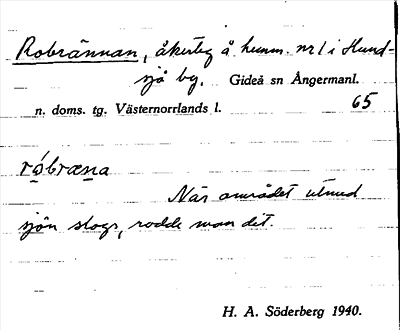 Robrännan, åkerteg å hemm. nr 1 i Hund-
sjö by. Gideå sn Ångermanl.
n. doms. tg. Västernorrlands l. 65
róbræna
När området utmed
sjön slogs, rodde man det.
H. A. Söderberg 1940.